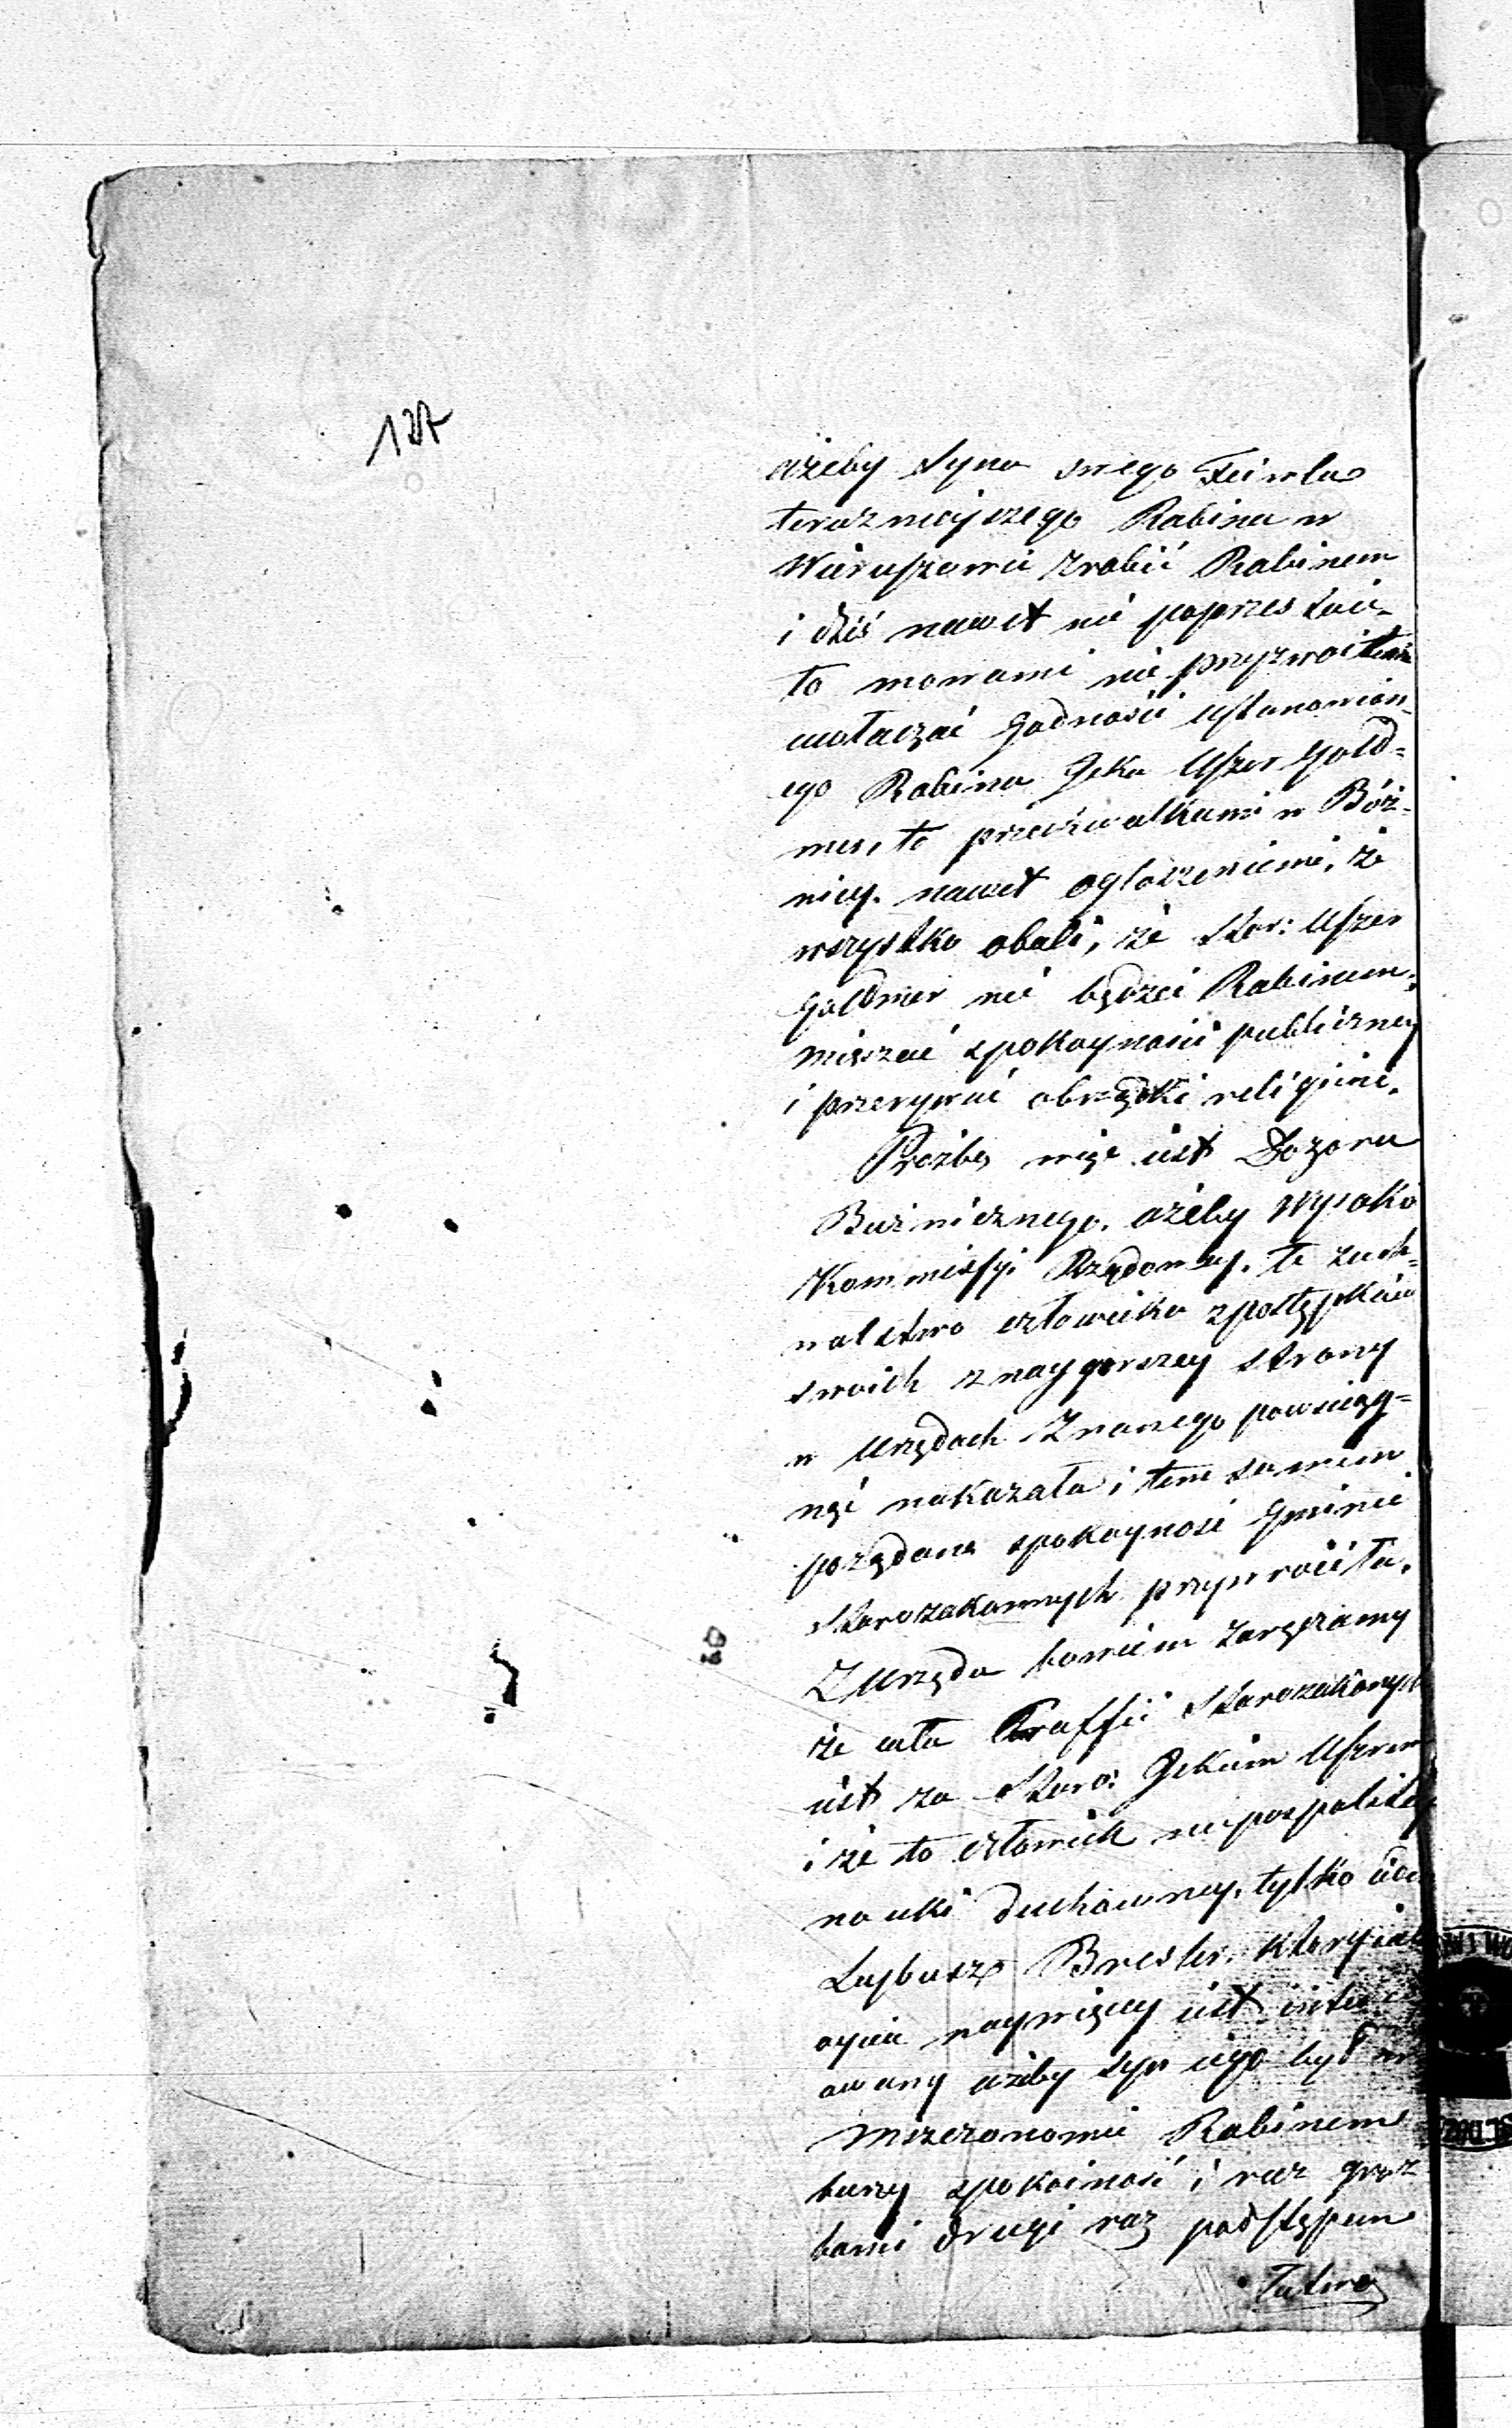 127
ażeby syna swego Feiwla
teraznieyszego Rabina w
Wieruszowie zrobić Rabinem
i dziś nawet nie poprzestaie
to mowami nie przyzwoitemi
uwłaczać godności ustanowion-
ego Rabina Jcka Uszer Gold-
mer, to przechwałkami w Bóż-
nicy. nawet ogłoszeniemi, że
wszystko obali, że Star: Uszer
Goldmer nie będzie Rabinem,
mieszać spokoyność publiczney
i przerywać obrządki religiine.
Prozbą więc iest Dozoru
Bużnicznego. ażeby Wysoka
Kommissyi Rządowey. te zuch-
walstwo człowieka z postępków
swoich z naygorszey strony
w Urzędach Znanego powsciąg-
nąć nakazała i tem samem
porządaną spokoyność Gminie
Starozakonnych przywróciła.
Z Urzędu bowiem zaręczamy
że cała Paraffii Starozakonnych
iest za Staro: Jckiem Uszrem
i że to człowiek niepospolitey
nauki duchowney, tylko
Leybusz Bresler. który iako
oyciec naywięcy iest
owany ażeby syn iego był w
Mszczonowie Rabinem
burzy spokoiność i raz groz
bami drugi raz podstępem